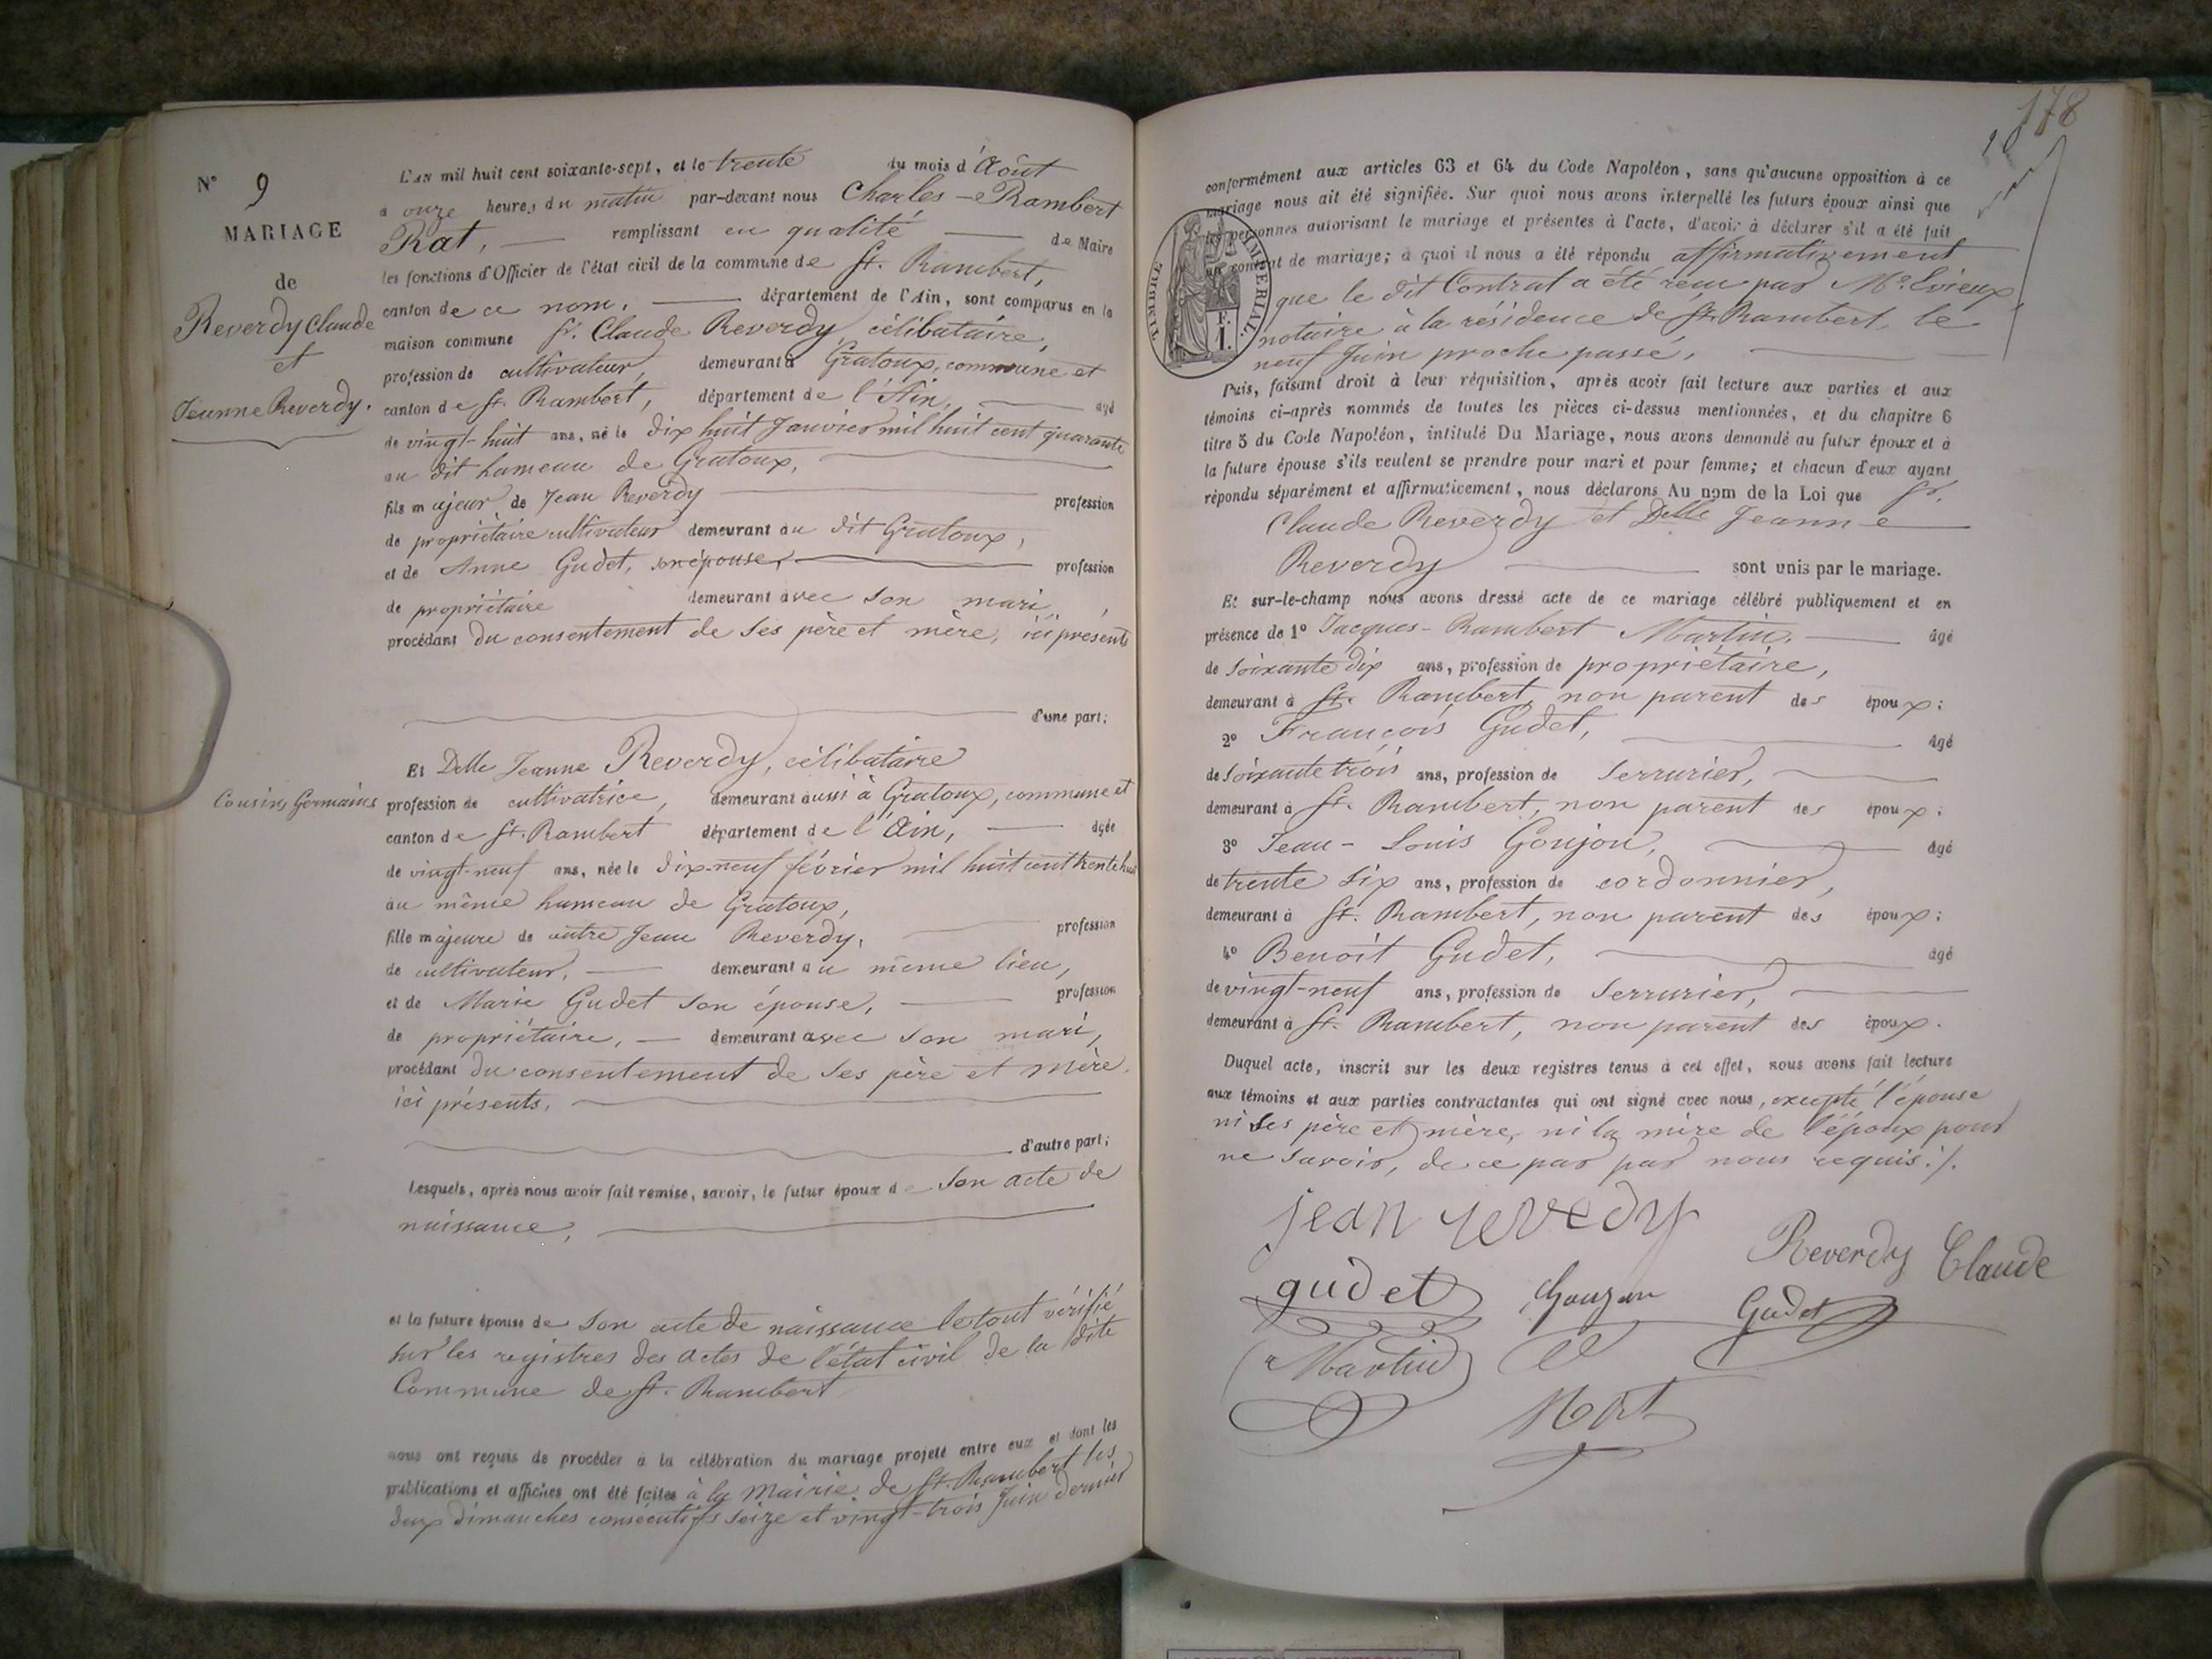 N° 9
MARIAGE
de
Reverdy Claude
et
Jeanne Reverdy.
L'AN mil huit cent soixante-sept, et le trente du mois d'Août
à onze heures du matin par-devant nous Charles-Rambert
Rat, remplissant en qualité de Maire
les fonctions d'Officier de l'état civil de la commune de St. Rambert,
canton de ce nom, département de l'Ain, sont comparus en la
maison commune Sr. Claude Reverdy, célibataire,
profession de cultivateur, demeurant à Gratoux, commune et
canton de St. Rambert, département de l'Ain, agé
de vingt-huit ans, né le dix huit Janvier mil huit cent quarante
au dit hameau de Gratoux,
fils majeur de Jean Reverdy profession
de propriétaire cultivateur demeurant au dit Gratoux,
et de Anne Gudet, son épouse, profession
de propriétaire demeurant avec son mari,
procédant du consentement de ses père et mère, ici présents
d'une part;
Et Delle Jeanne Reverdy, célibataire
Cousins Germains
profession de cultivatrice, demeurant aussi à Gratoux, commune et
canton de St. Rambert département de l'Ain, agée
de vingt-neuf ans, née le dix-neuf février mil huit cent trente huit
au même hameau de Gratoux,
fille majeure de autre Jean Reverdy, profession
de cultivateur, demeurant au même lieu,
et de Marie Gudet son épouse, profession
de propriétaire, demeurant avec son mari,
procédant du consentement de ses père et mère,
ici présents,
d'autre part;
Lesquels, après nous avoir fait remise, savoir, le futur époux de son acte de
naissance,
et la future épouse de son acte de naissance le tout vérifié
sur les registres des actes de l'état civil de la dite
Commune de St. Rambert
nous ont requis de procéder à la célébration du mariage projeté entre eux et dont les
publications et affiches ont été faites à la Mairie de St. Rambert les
deux dimanches consécutifs seize et vingt-trois Juin dernier
178
conformément aux articles 63 et 64 du Code Napoléon, sans qu'aucune opposition à ce
mariage nous ait été signifiée. Sur quoi nous avons interpellé les futurs époux ainsi que
les personnes autorisant le mariage et présentes à l'acte, d'avoir à déclarer s'il a été fait
un contrat de mariage; à quoi il nous a été répondu affirmativement
TIMBRE IMPERIAL.
F. 1.
que le dit Contrat a été reçu par Me. Evieux,
notaire à la résidence de St. Rambert, le
neuf Juin proche passé,
Puis, faisant droit à leur réquisition, après avoir fait lecture aux parties et aux
témoins ci-après nommés de toutes les pièces ci-dessus mentionnées, et du chapitre 6
titre 5 du Code Napoléon, intitulé Du Mariage, nous avons demandé au futur époux et à
la future épouse s'ils veulent se prendre pour mari et pour femme; et chacun d'eux ayant
répondu séparément et affirmativement, nous déclarons Au nom de la Loi que Sr.
Claude Reverdy et Delle Jeanne
Reverdy sont unis par le mariage.
Et sur-le-champ nous avons dressé acte de ce mariage célébré publiquement et en
présence de 1° Jacques-Rambert Martin, âgé
de soixante dix ans, profession de propriétaire,
demeurant à St. Rambert, non parent des époux;
2° François Gudet, âgé
de soixante trois ans, profession de serrurier,
demeurant à St. Rambert, non parent des époux;
3° Jean-Louis Goujon, âgé
de trente six ans, profession de cordonnier,
demeurant à St. Rambert, non parent des époux;
4° Benoît Gudet, âgé
de vingt-neuf ans, profession de serrurier,
demeurant à St. Rambert, non parent des époux.
Duquel acte, inscrit sur les deux registres tenus à cet effet, nous avons fait lecture
aux témoins et aux parties contractantes qui ont signé avec nous, excepté l'épouse
ni ses père et mère, ni la mère de l'époux pour
ne savoir, de ce par par nous requis./.
jean revedy
Reverdy Claude
gudet Goujon Gudet
Martin
Rat